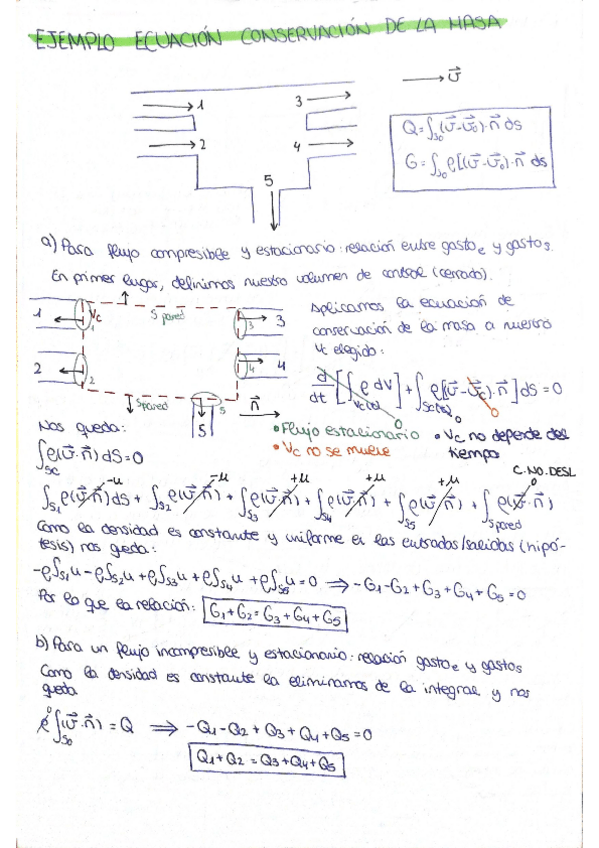 EJEMPLO ECUACIÓN CONSERVACIÓN DE LA MASA
1 3 → v⃗
2 4
5
Q=∫S0(v⃗-v⃗0)·n⃗ ds
G=∫S0 ρ[(v⃗-v⃗0)·n⃗ ds
a) Para flujo compresible y estacionario: relación entre gastoe y gastos.
En primer lugar, definimos nuestro volumen de control (cerrado).
1 Vc 1 S pared 3 3
2 2 4 4
Spared 5 5 n⃗
Aplicamos la ecuación de
conservación de la masa a nuestro
Vc elegido:
d/dt [∫Vc(t) ρ dV] + ∫Sc(t) ρ[(v⃗-v⃗c)·n⃗] dS = 0
0 0
• Flujo estacionario • Vc no depende del tiempo
• Vc no se mueve
Nos queda:
∫SC ρ(v⃗·n⃗) dS=0
-u +u +u +u C.NO.DESL 0
∫S1 ρ(v⃗·n⃗)dS + ∫S2 ρ(v⃗·n⃗) + ∫S3 ρ(v⃗·n⃗) + ∫S4 ρ(v⃗·n⃗) + ∫S5 ρ(v⃗·n⃗) + ∫Spared ρ(v⃗·n⃗)
Como la densidad es constante y uniforme en las entradas/salidas (hipó-
tesis) nos queda:
-ρ∫S1 u - ρ∫S2 u + ρ∫S3 u + ρ∫S4 u + ρ∫S5 u = 0 ⟹ -G1-G2+G3+G4+G5=0
Por lo que la relación: G1+G2=G3+G4+G5
b) Para un flujo incompresible y estacionario: relación gastoe y gastos
Como la densidad es constante la eliminamos de la integral y nos
queda
ρ 0 ∫S0(v⃗·n⃗) = Q ⟹ -Q1-Q2+Q3+Q4+Q5=0
Q1+Q2=Q3+Q4+Q5